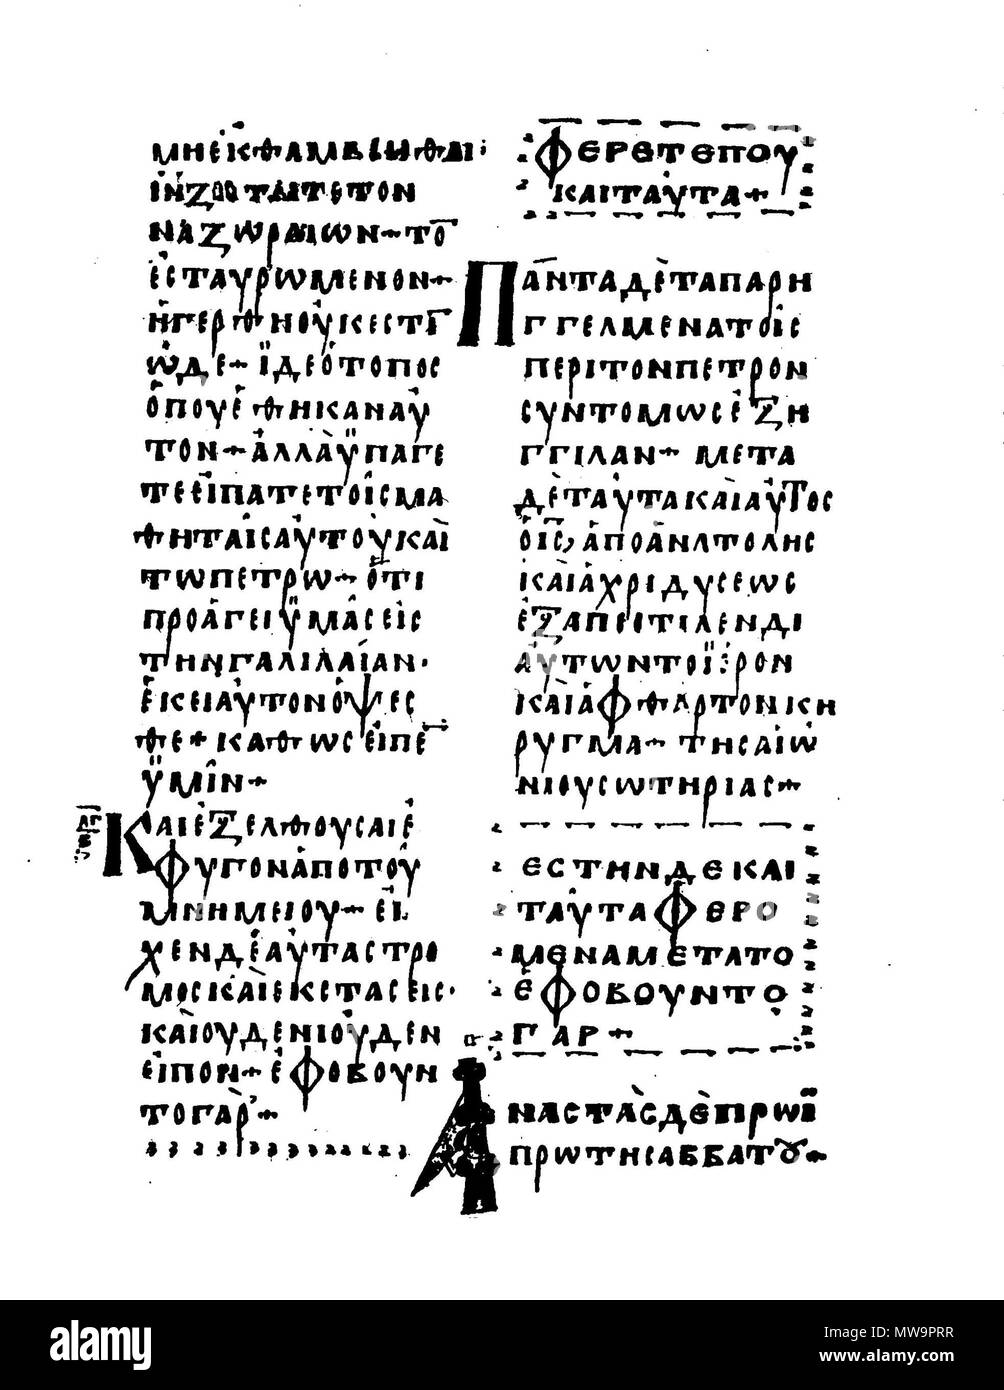 ΜΗΕΚΘΑΜΒΕΙΗΘΑΙ:
ΙΝΖΗΤΕΙΤΕΤΟΝ
ΝΑΖΩΡΑΙΩΝ+ΤΟ̅
ΕϹΤΑΥΡΩΜΕΝΟΝ+
ΗΓΕΡΘΗΟΥΚΕϹΤΙ̅
ΩΔΕ+ΪΔΕΟΤΟΠΟϹ
ΟΠΟΥΕΘΗΚΑΝΑΥ
ΤΟΝ+ΑΛΛΑΫΠΑΓΕ
ΤΕΕΙΠΑΤΕΤΟΙϹΜΑ
ΘΗΤΑΙϹΑΥΤΟΥΚΑΙ
ΤΩΠΕΤΡΩ+ΟΤΙ
ΠΡΟΑΓΕΙΫΜΑϹΕΙϹ
ΤΗΝΓΑΛΙΛΑΙΑΝ·
ΕΚΕΙΑΥΤΟΝΟΨΕϹ
ΘΕ+ΚΑΘΩϹΕΙΠΕ̅
ΫΜΙΝ+
ΚΑΙΕΞΕΛΘΟΥϹΑΙΕ
ΦΥΓΟΝΑΠΟΤΟΥ
ΜΝΗΜΕΙΟΥ+ΕΙ
ΧΕΝΔΕΑΥΤΑϹΤΡΟ
ΜΟϹΚΑΙΕΚϹΤΑϹΕΙϹ·
ΚΑΙΟΥΔΕΝΙΟΥΔΕΝ
ΕΙΠΟΝ+ΕΦΟΒΟΥΝ
ΤΟΓΑΡ+
ΦΕΡΕΤΕΠΟΥ
ΚΑΙΤΑΥΤΑ+
ΠΑΝΤΑΔΕΤΑΠΑΡΗ
ΓΓΕΛΜΕΝΑΤΟΙϹ
ΠΕΡΙΤΟΝΠΕΤΡΟΝ
ϹΥΝΤΟΜΩϹΕΞΗ
ΓΓΙΛΑΝ+ΜΕΤΑ
ΔΕΤΑΥΤΑΚΑΙΑΥΤΟϹ
ΟΙ̅Ϲ̅,ΑΠΟΑΝΑΤΟΛΗϹ
ΚΑΙΑΧΡΙΔΥϹΕΩϹ
ΕΞΑΠΕϹΤΙΛΕΝΔΙ
ΑΥΤΩΝΤΟΪΕΡΟΝ
ΚΑΙΑΦΘΑΡΤΟΝΚΗ
ΡΥΓΜΑ+ΤΗϹΑΙΩ
ΝΙΟΥϹΩΤΗΡΙΑϹ+
ΕϹΤΗΝΔΕΚΑΙ
ΤΑΥΤΑΦΕΡΟ
ΜΕΝΑΜΕΤΑΤΟ
ΕΦΟΒΟΥΝΤΟ
ΓΑΡ+
ΑΝΑϹΤΑϹΔΕΠΡΩΪ
ΠΡΩΤΗϹΑΒΒΑΤΟΥ+
alamy
Image ID: MW9PRR
www.alamy.com